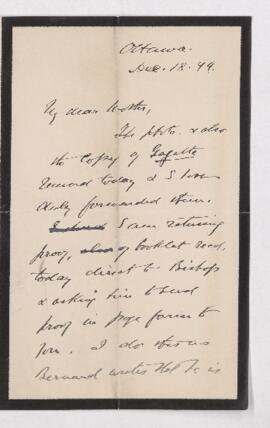 Ottawa.
Dec. 18. 99.
My dear
The photo. & also
the copy of Gazette
today & I have
duly forwarded them.
I am returning
proof, also of booklet recd,
today direct to Bishop
& asking him to send
proof in page form to
you. I do this as
Bernard writes that he is